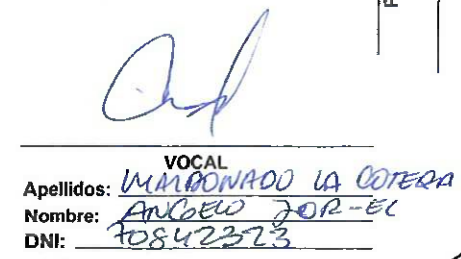 VOCAL
Apellidos: MALDONADO LA COTERA
Nombre: ANGELO JOR-EL
DNI: 70842323